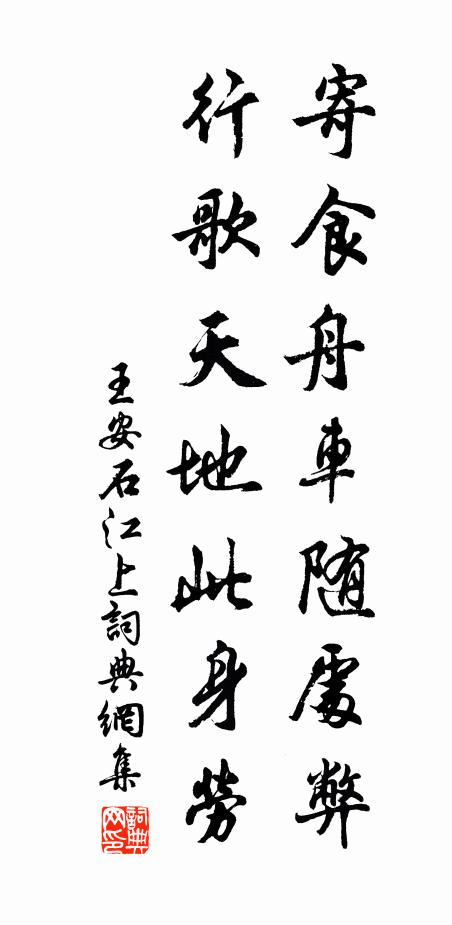 寄食舟車随處弊
行歌天地此身勞
王安石江上詞典網集
詞典
网印